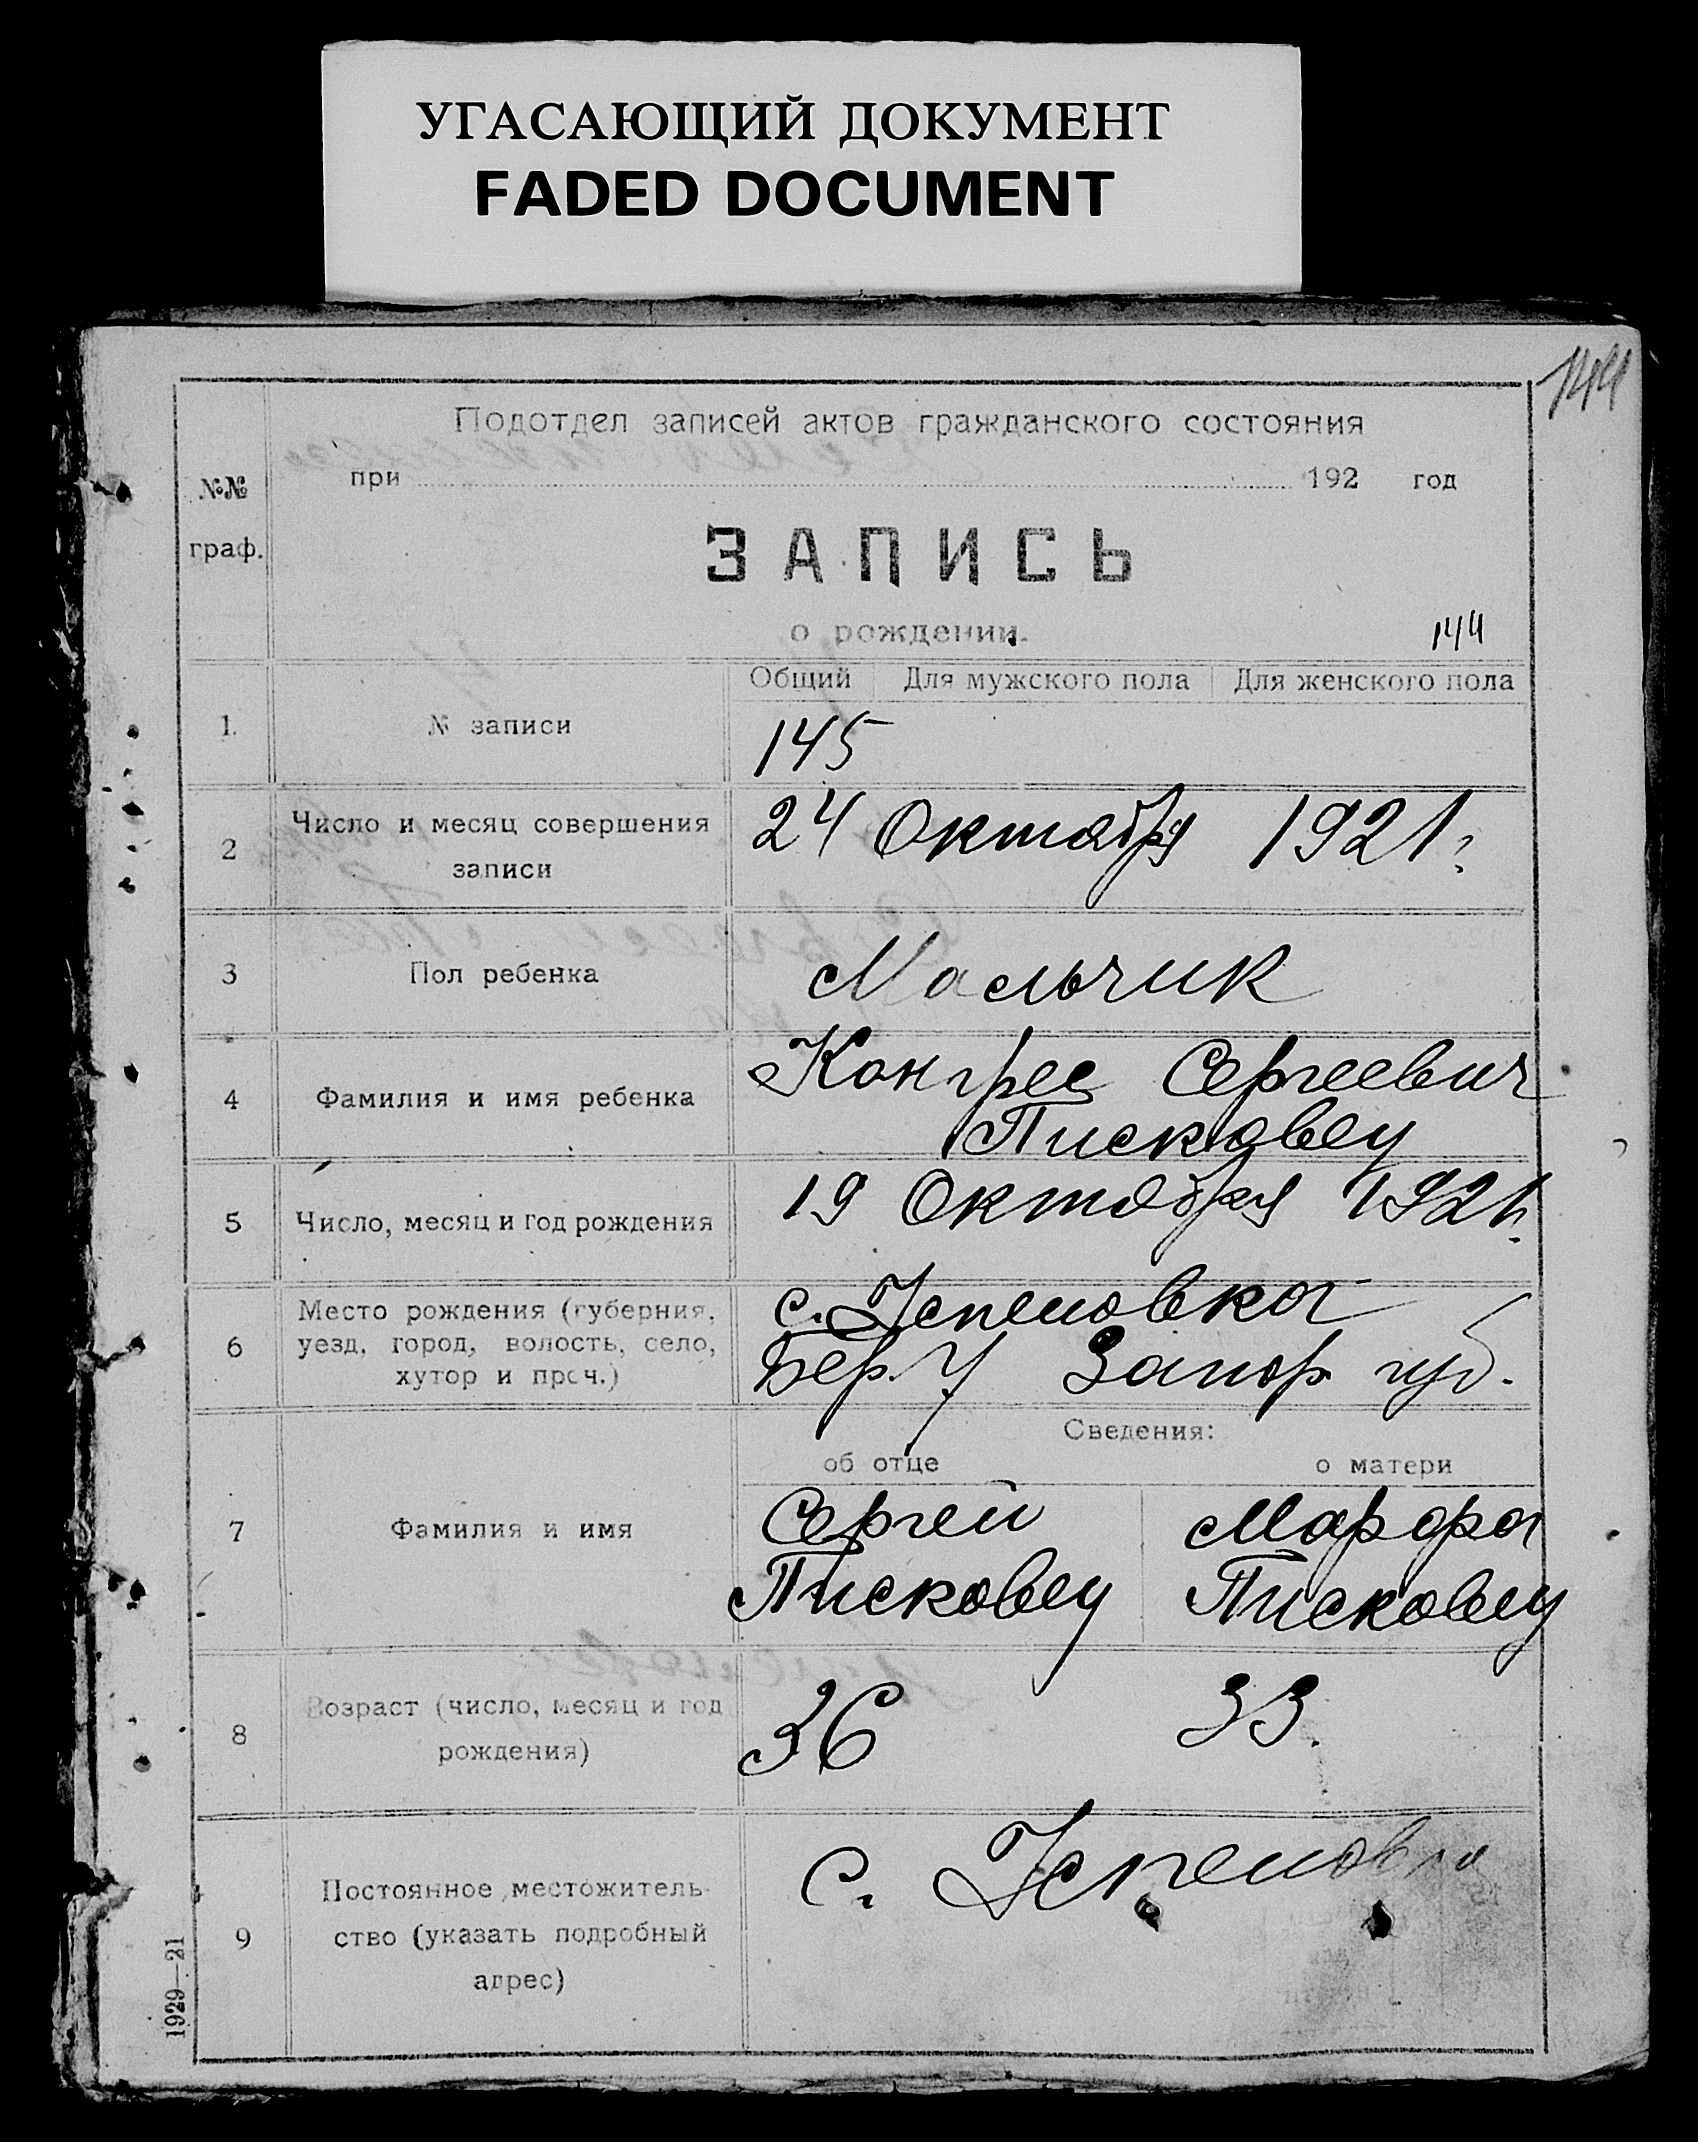 УГАСАЮЩИЙ ДОКУМЕНТ
FADED DOCUMENT
144
Подотдел записей актов гражданского состояния
при 192 год
№№ граф.
ЗАПИСЬ
о рождении.
144
Общий Для мужского пола Для женского пола
1. № записи 145
2 Число и месяц совершения записи 24 Октября 1921 г.
3 Пол ребенка Мальчик
4 Фамилия и имя ребенка Конгрес Сергеевич
Писковец
5 Число, месяц и год рождения 19 Октября 1921 г.
6 Место рождения (губерния, с. Успеновка
уезд, город, волость, село, Бер. У Запор губ.
хутор и проч.)
Сведения:
об отце о матери
7 Фамилия и имя Сергей Марфа
Писковец Писковец
8 Возраст (число, месяц и год рождения) 36 33.
9 Постоянное местожитель- с. Успеновка
ство (указать подробный
адрес)
1929—21